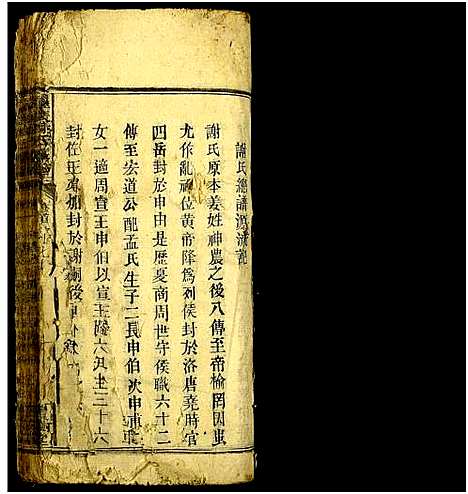 謝氏總譜源流記
謝氏原本姜姓神農之後八傳至帝榆罔因蚩
尤作亂禪位黃帝降爲列侯封於洛唐堯時官
四岳封於申由是歷夏商周世守侯職六十二
傳至宏道公配孟氏生子二長申伯次申甫
女一適周宣王申伯以宣王六生三十六
封加封於謝嗣後